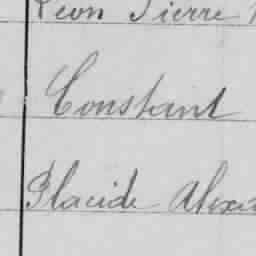 Léon Pierre
Constant
Placide Alexa